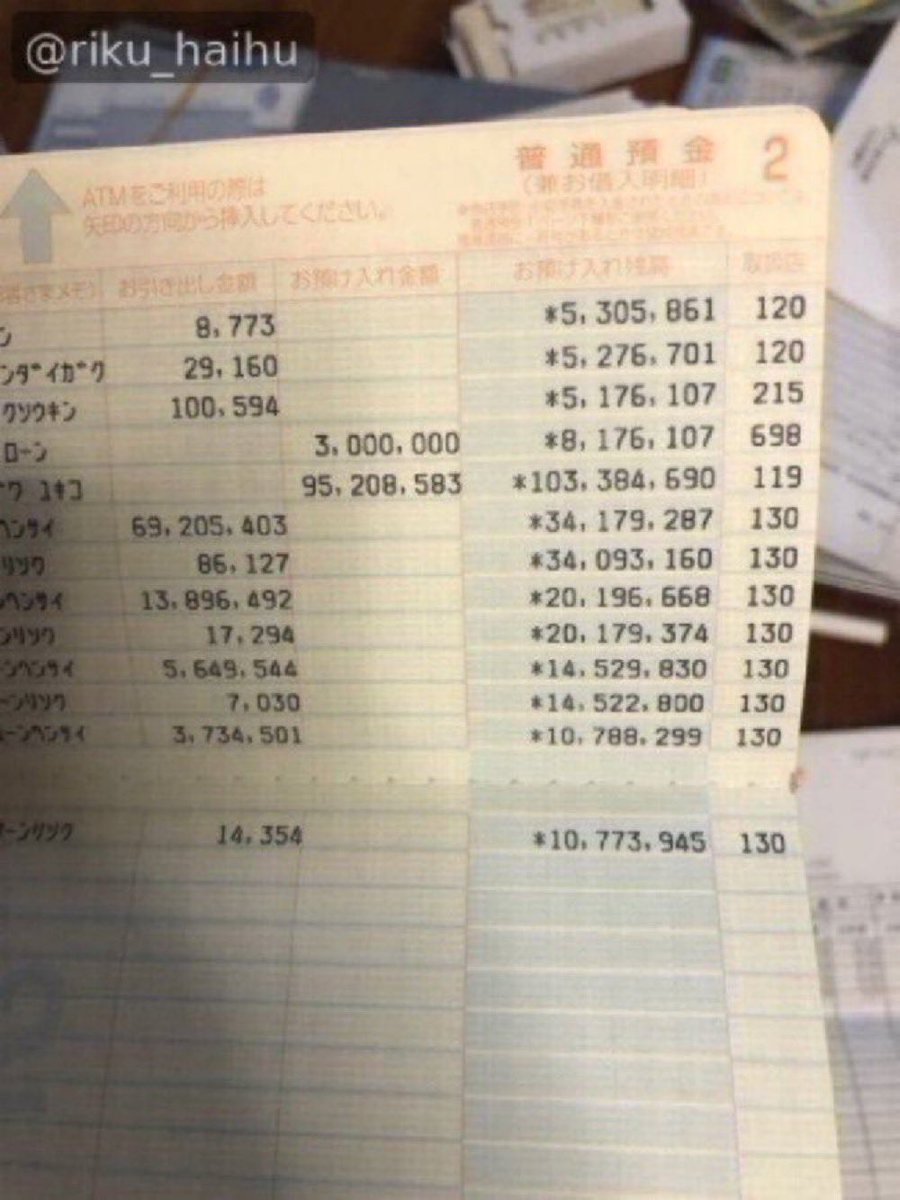 @riku_haihu
普通預金 2
(兼お借入明細)
ATMをご利用の際は
矢印の方向から挿入してください。
お引き出し金額 お預け入れ金額 お預け入れ残高 取扱店
ン 8,773 *5,305,861 120
ンダイガク 29,160 *5,276,701 120
クソウキン 100,594 *5,176,107 215
ローン 3,000,000 *8,176,107 698
ワ ユキコ 95,208,583 *103,384,690 119
ヘンサイ 69,205,403 *34,179,287 130
リソク 86,127 *34,093,160 130
ンヘンサイ 13,896,492 *20,196,668 130
ンリソク 17,294 *20,179,374 130
ーンヘンサイ 5,649,544 *14,529,830 130
ーンリソク 7,030 *14,522,800 130
ーンヘンサイ 3,734,501 *10,788,299 130
ーンリソク 14,354 *10,773,945 130